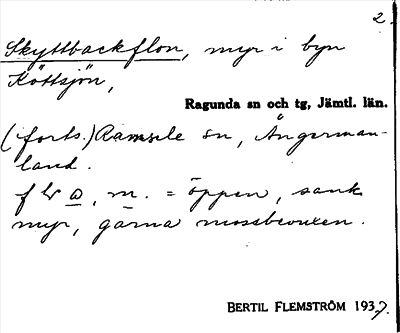 2.
Skyttbackflon, myr i byn
Köttsjön,
Ragunda sn och tg, Jämtl. län.
(forts.) Ramsele sn, Ångerman-
land.
m. = öppen, sank
myr, gärna mossbevuxen.
BERTIL FLEMSTRÖM 1937.